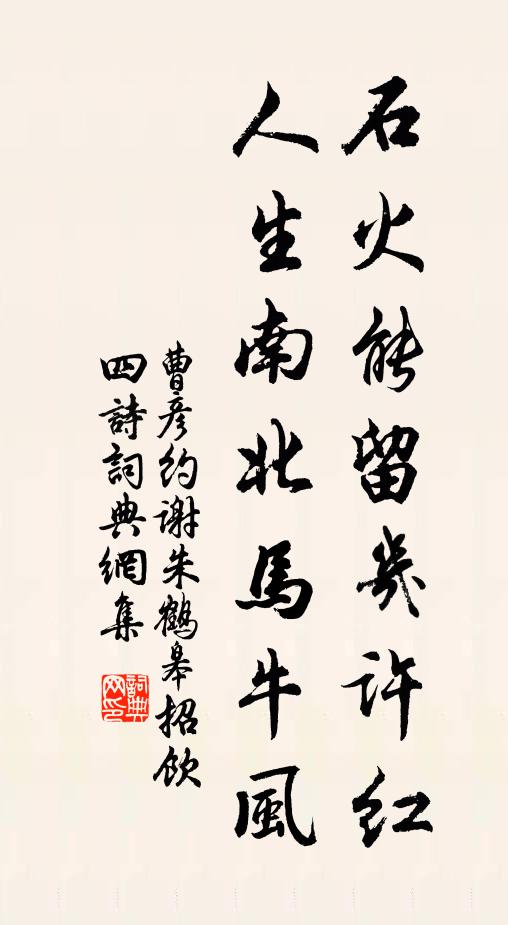 石火能留幾許紅
人生南北馬牛風
曹彦約谢朱鶴皋招飲
四詩詞典網集
詞典
网印